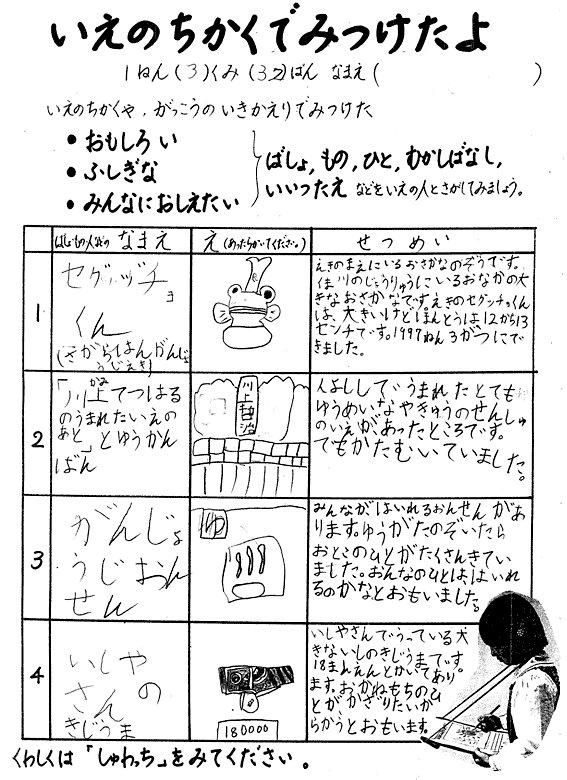 いえのちかくでみつけたよ
1ねん(3)くみ(32)ばん なまえ( )
いえのちかくや、がっこうのいきかえりでみつけた
• おもしろい
• ふしぎな
• みんなにおしえたい
ばしょ, もの, ひと, むかしばなし,
いいつたえ などをいえの人とさがしてみましょう。
ばしょ・もの・人などの なまえ
え(あったらかいてください。)
せつめい
1
セグッッチョ
くん
(さがらはんがんじょ
うじえき)
えきのまえにいるおさかなのぞうです。
川のじょうりゅうにいるおなかの大
きなおさかなです。えきのセグッチョくん
は、大きいけどほんとうは12から13
センチです。1997ねん3がつにで
きました。
2
「川上てつはる
かみ
のうまれたいえの
あと」とゆうかん
ばん
川上哲治
でうまれたとても
ゆうめいなやきゅうのせんしゅ
のいえがあったところです。
でもかたむいていました。
3
がんじょ
うじおん
せん
ゆ
みんながはいれるおんせんがあ
ります。ゆうがたのぞいたら
おとこのひとがたくさんきてい
ました。おんなのひとは、はいれ
るのかなとおもいました。
4
いしや
さんの
きじうま
180000
いしやさんでうっている大
きないしのきじうまです。
18まんえんとかいてあり
ます。おかねもちのひ
とがかざりたいか
らかうとおもいます。
くわしくは「しゅわっち」をみてください。